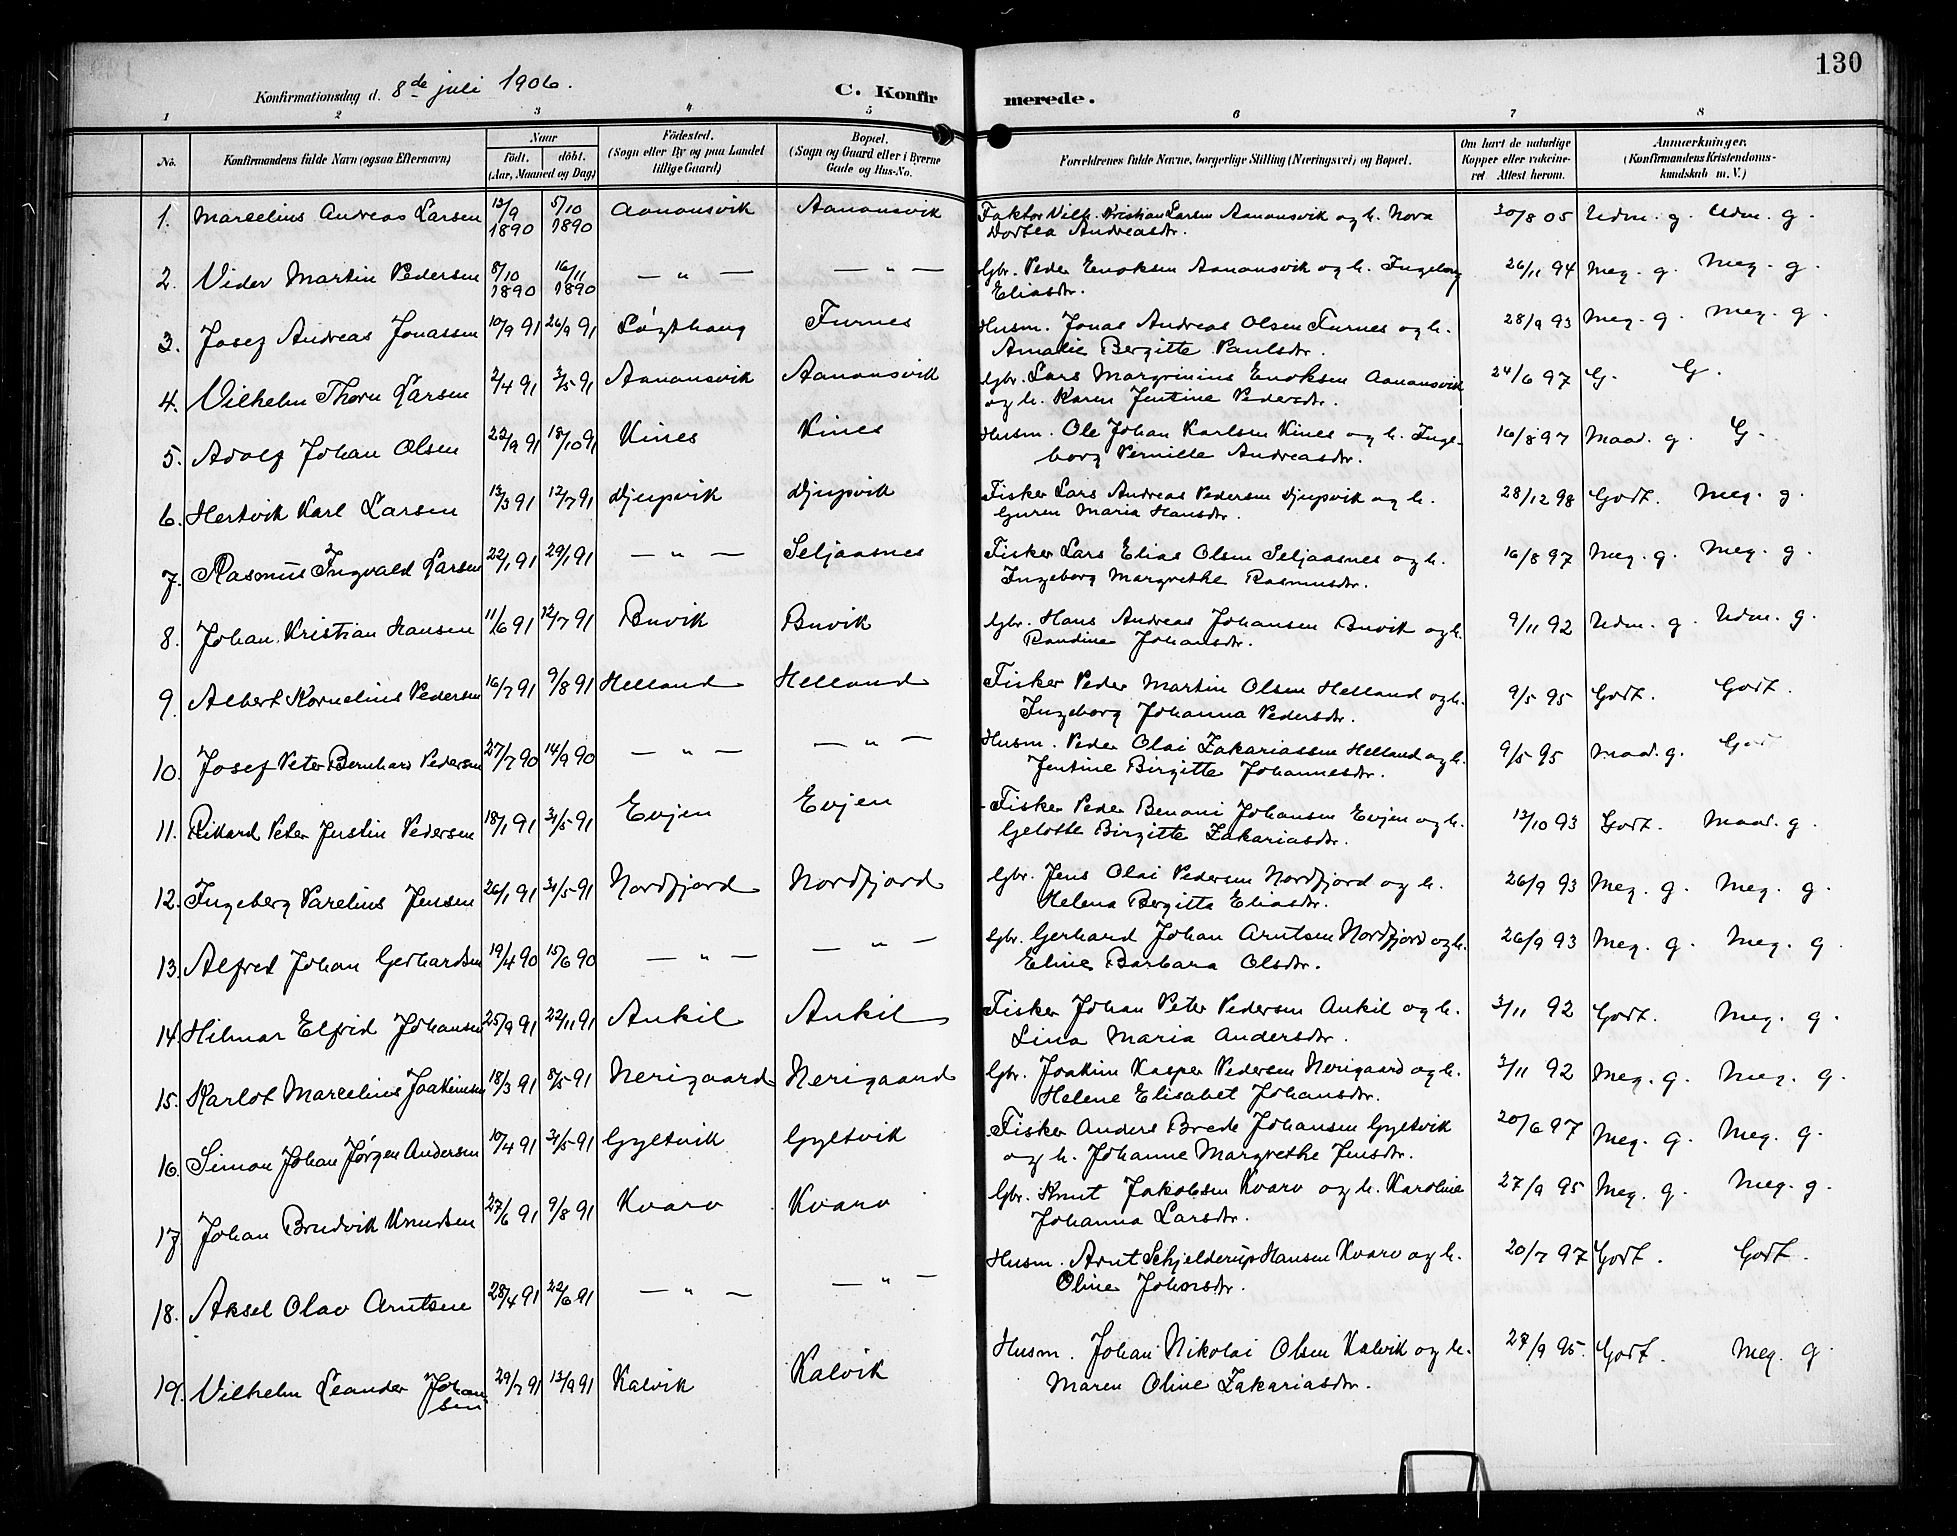 130
Konfirmationsdag d. 8de juli 1906. C. Konfirmerede.
1 2 3 4 5 6 7 8
No. Konfirmandens fulde Navn (ogsaa Efternavn) Naar födt. döbt. (Aar, Maaned og Dag) Födested. (Sogn eller By og paa Landet tillige Gaard) Bopæl. (Sogn og Gaard eller i Byerne Gade og Hus-No. Forældrenes fulde Navne, borgerlige Stilling (Næringsvei) og Bopæl. Om havt de naturlige Kopper eller vakcineret Attest herom. Anmærkninger. (Konfirmandens Kristendomskundskab m. V.)
1. Marcelius Andreas Larsen 12/9 1890 5/10 1890 Aanonsvik Aanonsvik Faktor Vilh. Kristian Larsen Aanonsvik og h. Nora
Dortea Andreasdtr. 30/8 05 Udm. g. Udm. g.
2. Vider Martin Pedersen 8/10 1890 16/11 1890 — " — — " — Gbr. Peder Enoksen Aanonsvik og h. Ingeborg
Eliasdtr. 26/11 94 Meg. g. Meg. g.
3. Josef Andreas Jonassen 10/9 91 26/9 91 Løgthaug Furnes Husm. Jonas Andreas Olsen Furnes og h.
Amalie Bergitte Paulsdtr. 28/9 93 Meg. g. Meg. g.
4. Vilhelm Thorn Larsen 2/4 91 3/5 91 Aanonsvik Aanonsvik Gbr. Lars Margrinius Enoksen Aanonsvik
og h. Karen Jentine Pedersdtr. 24/6 97 G. G.
5. Adolf Johan Olsen 22/9 91 18/10 91 Kines Kines Husm. Ole Johan Karlsen Kines og h. Inge-
borg Pernille Andreasdtr. 16/8 97 Maad. g. G.
6. Hertvik Karl Larsen 13/3 91 12/7 91 Djupvik Djupvik Fisker Lars Andreas Pedersen Djupvik og h.
Guren Maria Hansdtr. 28/12 98 Godt. Meg. g.
7. Rasmus Ingvald Larsen 22/1 91 29/1 91 — " — Seljaasnes Fisker Lars Elias Olsen Seljaasnes og h.
Ingeborg Margrethe Rasmusdtr. 16/8 97 Meg. g. Meg. g.
8. Johan Kristian Hansen 11/6 91 12/7 91 Buvik Buvik Gbr. Hans Andreas Johansen Buvik og h.
Randine Johansdtr. 9/11 92 Udm. g. Udm. g.
9. Albert Kornelius Pedersen 16/7 91 9/8 91 Helland Helland Fisker Peder Martin Olsen Helland og h.
Ingeborg Johanna Pedersdtr. 9/5 95 Godt. Godt.
10. Josef Peter Bernhard Pedersen 27/7 90 14/9 90 — " — — " — Husm. Peder Olai Zakariassen Helland og h.
Jentine Birgitte Johannesdtr. 9/5 95 Maad. g. Godt
11. Rikard Peter Justin Pedersen 18/1 91 31/5 91 Evjen Evjen Fisker Peder Benoni Johansen Evjen og h.
Gelotte Birgitte Zakariasdtr. 13/10 93 Godt. Maad. g.
12. Ingeberg Parelius Jensen 26/1 91 31/5 91 Nordfjord Nordfjord Gbr. Jens Olai Pedersen Nordfjord og h.
Helena Bergitta Eliasdtr. 26/9 93 Meg. g. Meg. g.
13. Alfred Johan Gerhardsen 19/4 90 15/6 90 — " — — " — Gbr. Gerhard Johan Arntsen Nordfjord og h.
Eline Barbara Olsdtr. 26/9 93 Meg. g. Meg. g.
14. Hilmar Elfrid Johansen 25/9 91 22/11 91 Ankil Ankil Fisker Johan Peter Pedersen Ankil og h.
Lina Maria Andersdtr. 3/11 92 Godt. Meg. g.
15. Karlot Marcelius Joakimsen 18/3 91 8/5 91 Nerigaard Nerigaard Gbr. Joakim Kasper Pedersen Nerigaard og h.
Helene Elisabet Johansdtr. 3/11 92 Meg. g. Meg. g.
16. Simon Johan Jørgen Andersen 10/4 91 31/5 91 Gyltvik Gyltvik Fisker Anders Brede Johansen Gyltvik
og h. Johanne Margrethe Jensdtr. 20/6 97 Meg. g. Meg. g.
17. Johan Brudvik Knudsen 27/6 91 9/8 91 Kvarv Kvarv Gbr. Knut Jakobsen Kvarv og h. Karoline
Johanna Larsdtr. 27/9 95 Meg. g. Meg. g.
18. Aksel Olav Arntsen 28/4 91 22/6 91 — " — — " — Husm. Arnt Schjelderup Hansen Kvarv og h.
Oline Johnsdtr. 20/7 97 Godt. Godt.
19. Vilhelm Leander Johansen 29/7 91 13/9 91 Kalvik Kalvik Husm. Johan Nikolai Olsen Kalvik og h.
Maren Oline Zakariasdtr. 27/9 95. Godt. Meg. g.